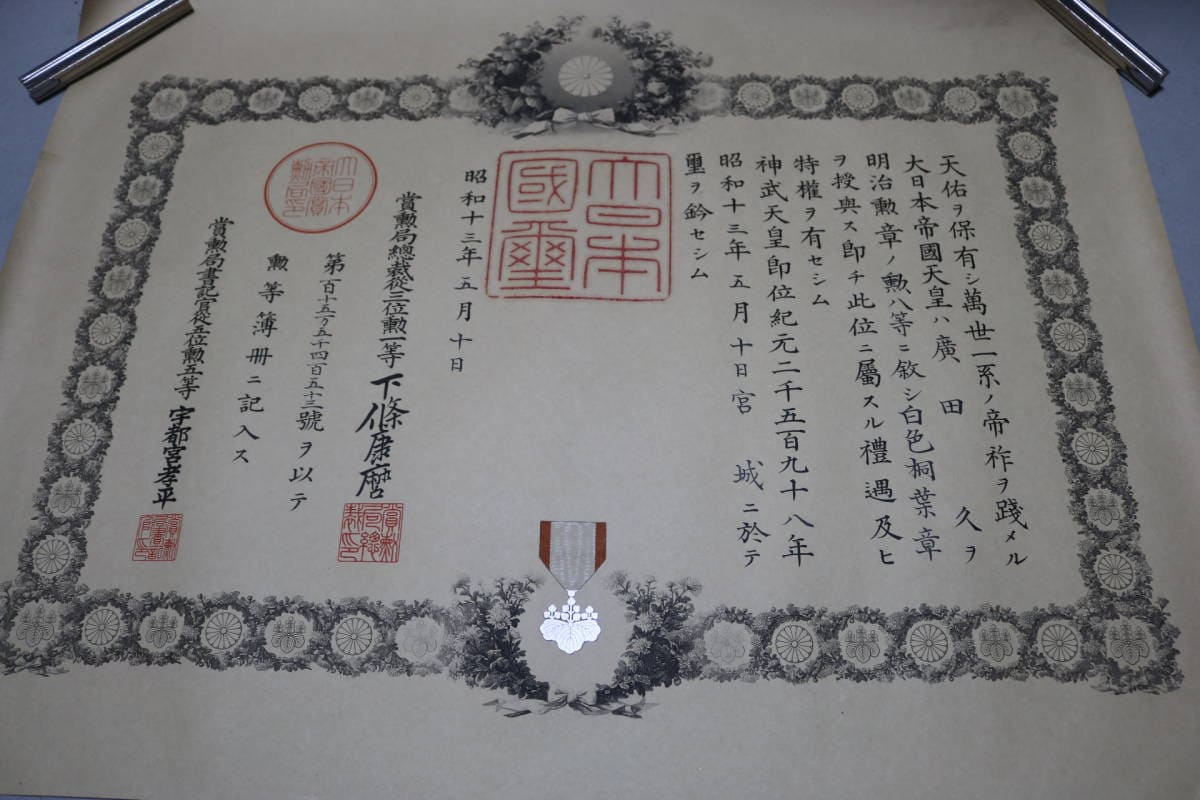 天佑ヲ保有シ萬世一系ノ帝祚ヲ踐メル
大日本帝國天皇ハ廣田久ヲ
明治勲章ノ勲八等ニ敘シ白色桐葉章
ヲ授與ス即チ此位ニ屬スル禮遇及ヒ
特權ヲ有セシム
神武天皇即位紀元二千五百九十八年
昭和十三年五月十日宮城ニ於テ
璽ヲ鈐セシム
大日本
國璽
昭和十三年五月十日
賞勲局總裁從三位勲一等下條康麿
賞勲局總裁印
第一百十五万五千四百五十三號ヲ以テ
勲等簿册ニ記入ス
大日本
帝國賞
勲局印
賞勲局書記官從五位勲五等宇都宮孝平